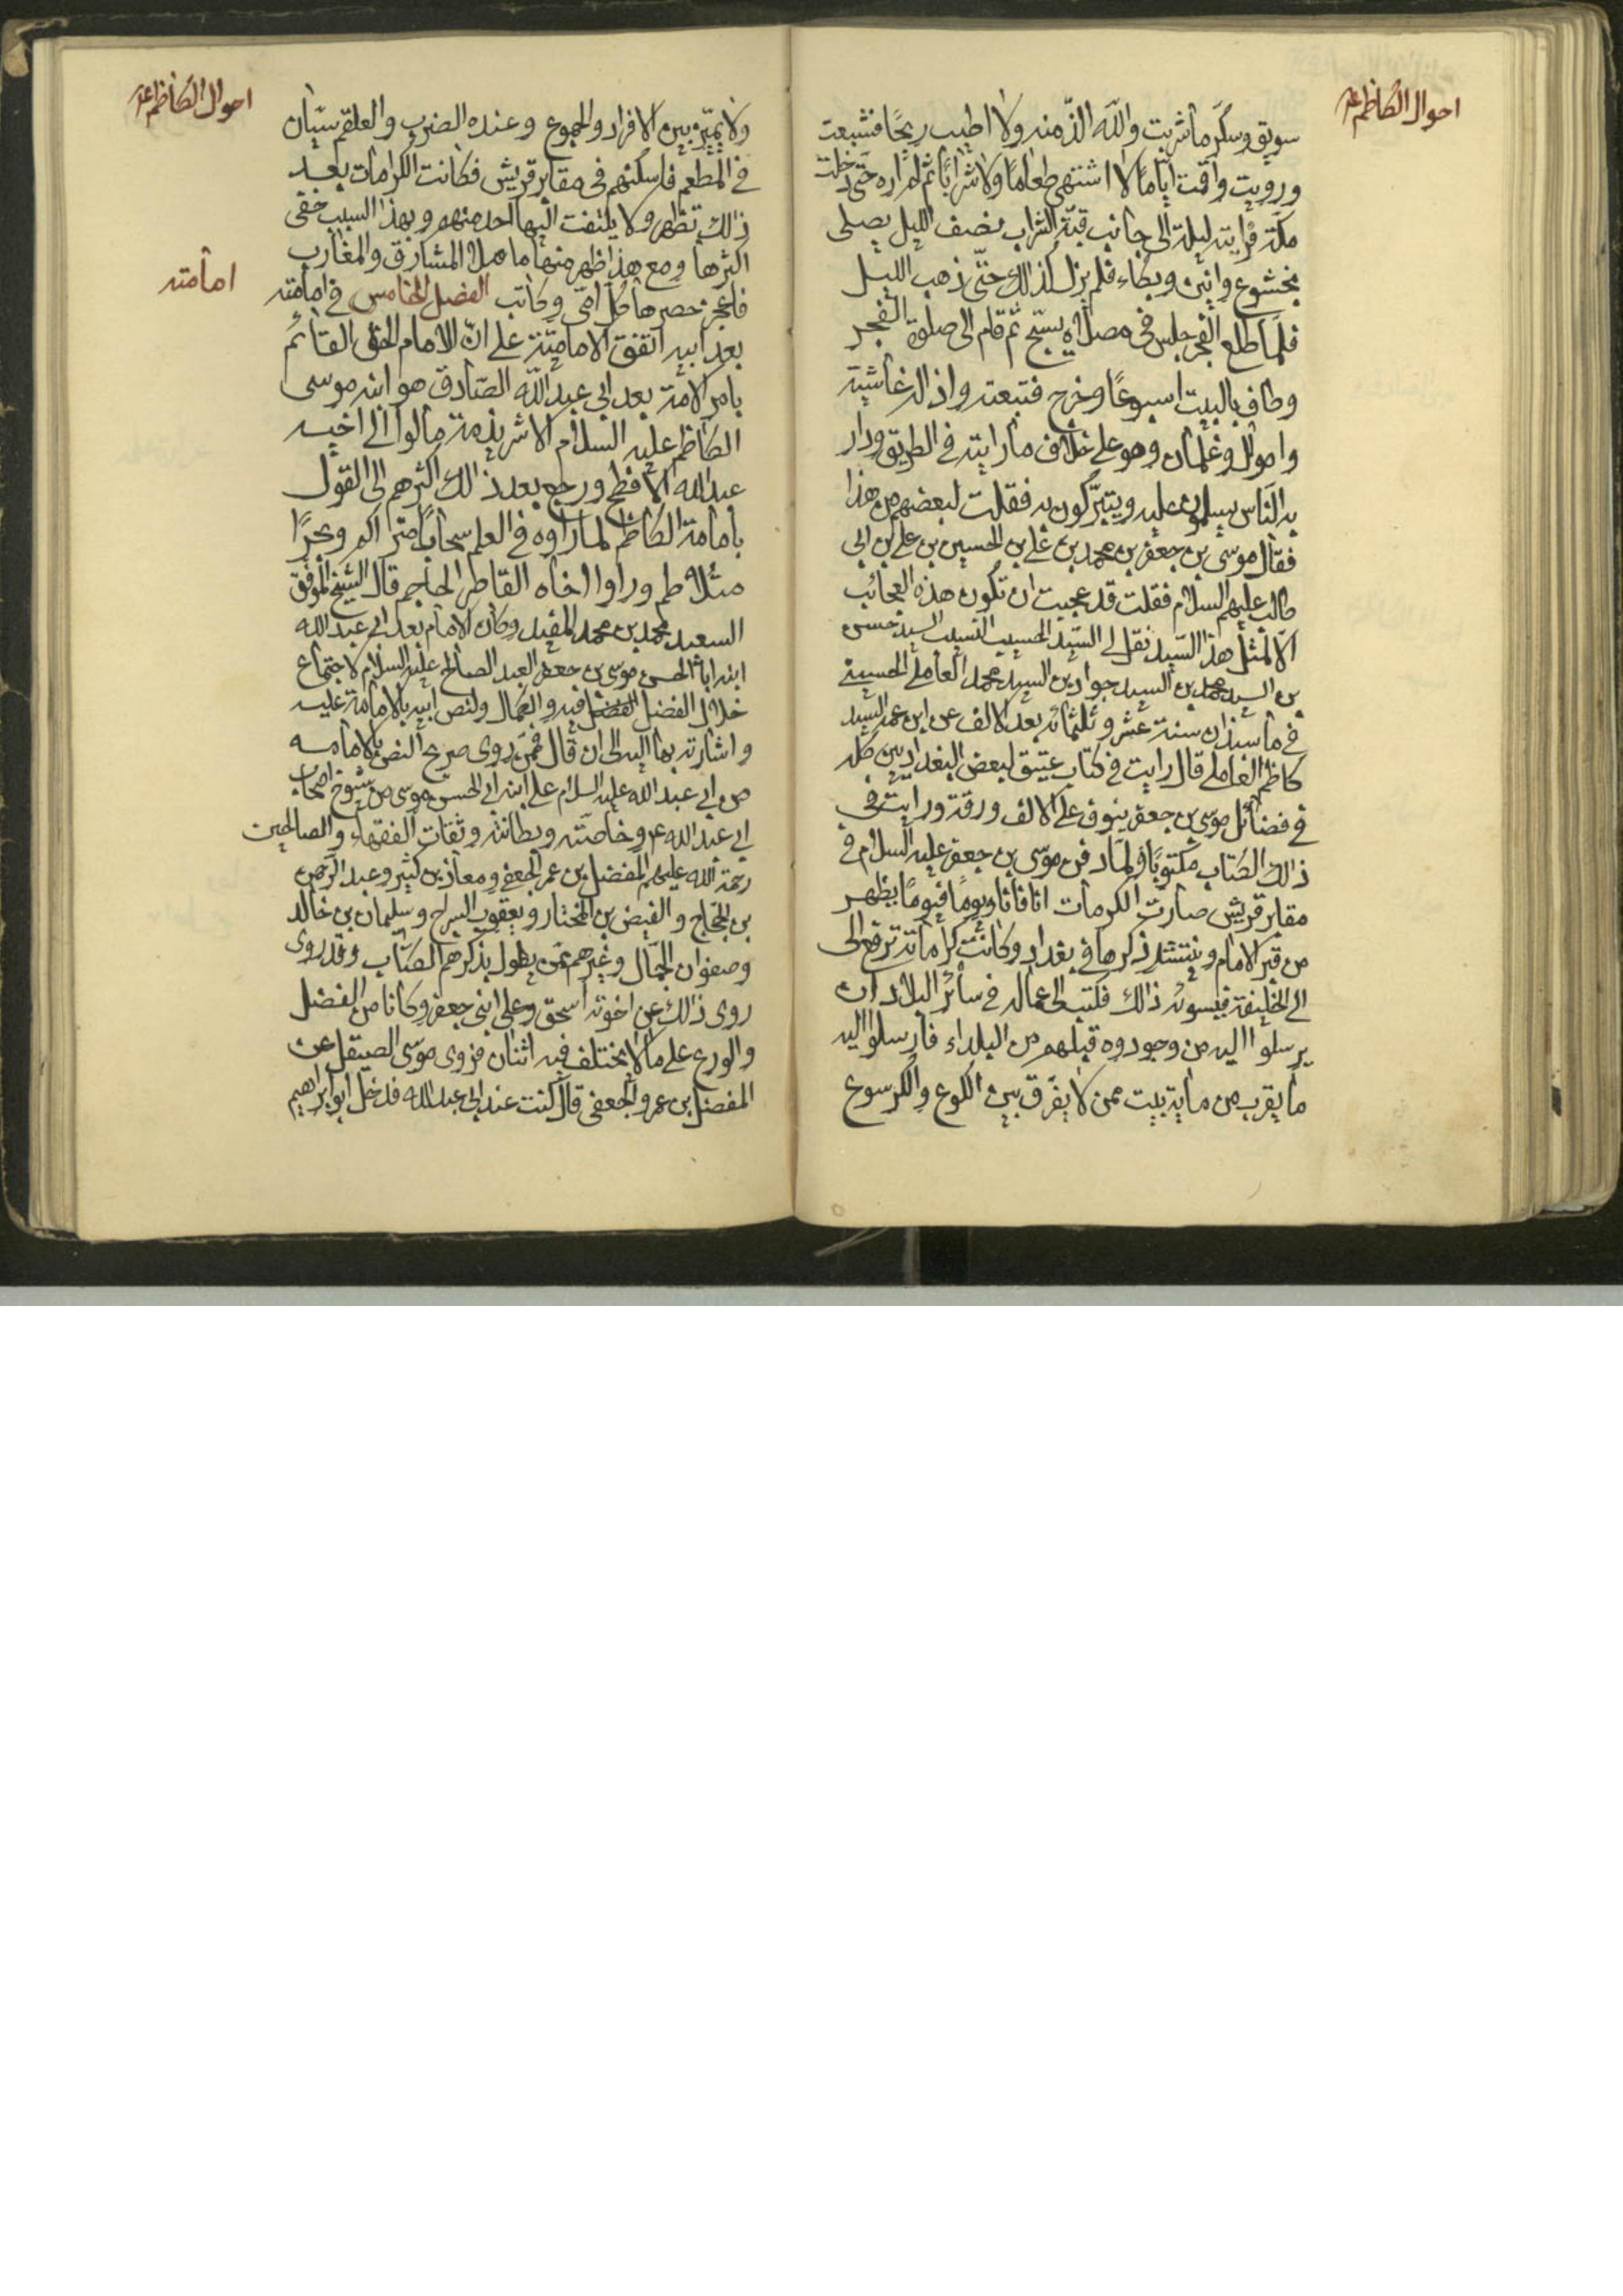 احوال الكاظم ع
سويق وسكر ما شربت والله الذّ منه ولا اطيب ريحًا فشبعت
ورويت واقمت ايّامًا لا اشتهي طعامًا ولا شرابًا ثم لم اره حتّى دخلت
مكّة فرايته ليلة الى جانب قبّة الشراب نصف الليل يصلى
بخشوع وانين وبكاء فلم يزل كذلك حتّى ذهب الليل
فلمّا طلع الفجر جلس في مصلاه يسبّح ثم قام الى صلوة الفجر
وطاف بالبيت اسبوعًا وخرج فتبعته واذا له غاشية
واموال وغلمان وهو على خلاف ما رايته في الطريق ودار
به النّاس يسلمون عليه ويتبرّكون به فقلت لبعضهم من هذا
فقال موسى بن جعفر بن محمد بن علي بن الحسين بن علي بن ابي
طالب عليهم السلام فقلت قد عجبت ان تكون هذه العجائب
الّا لمثل هذا السّيد نقل لي السّيد الحسيب النسيب السيد حسن
بن السيد محمد بن السيد جواد بن السيد محمد العاملي الحسيني
في ماسبذان سنة عشر وثلثمائه بعد الالف عن ابن عمه السيد
كاظم العاملي قال رايت في كتاب عتيق لبعض البغداديين كله
في فضائل موسى بن جعفر ينوف على الالف ورقة ورايت في
ذلك الكتاب مكتوبًا ولمّا دفن موسى بن جعفر عليه السلام في
مقابر قريش صارت الكرمات انا فانا ويومًا فيومًا يظهر
من قبر الامام وينتشر ذكرها في بغداد وكانت كراماته ترفع الى
الى الخليفة فيسوئه ذالك فكتب الى عماله في سائر البلاد ان
يرسلوا اليه من وجودوه قبلهم من البلداء فارسلوا اليه
ما يقرب من ماية بيت ممن لا يفرّق بين الكوع والكرسوع
احوال الكاظم ع
ولا يميّز بين الافراد والجموع وعنده الضرب والعلقم سيّان
في المطعم فاسكنهم في مقابر قريش فكانت الكرامات بعد
ذلك تظهر ولا يلتفت اليها احد منهم وبهذا السبب خفى
اكثرها ومع هذا ظهر منها ما ملا المشارق والمغارب
فاعجز حصرها كل امّي وكاتب الفصل الخامس في امامته
امامته
بعد ابيه اتفقت الاماميّة على انّ الامام الحق القائم
بامر الامّة بعد ابي عبد الله الصّادق هو ابنه موسى
الكاظم عليه السلام الا شرذمة مالوا الى اخيه
عبد الله الافطح ورجع بعد ذالك اكثرهم الى القول
بامامة الكاظم لما راوه في العلم سحابًا متراكم وبحرًا
متلاطم وراوا اخاه القاطر الحاجم قال الشيخ الموفق
السعيد محمد بن محمد المفيد وكان الامام بعد ابي عبد الله
ابنه ابا الحسن موسى بن جعفر العبد الصالح عليه السلام لاجتماع
خلال الفضل فيه والكمال ولنص ابيه بالامامة عليه
واشارته بها اليه الى ان قال فممّن روى صريح النص بالامامه
من ابي عبد الله عليه السلام على ابنه ابي الحسن موسى من شيوخ اصحاب
ابي عبد الله ع وخاصّته وبطانته وثقات الفقهاء والصالحين
رحمة الله عليهم المفضل بن عمر الجعفي ومعاذ بن كثير وعبد الرّحمن
بن الحجاج والفيض بن المختار ويعقوب السراج وسليمان بن خالد
وصفوان الجمّال وغيرهم ممّن يطول بذكرهم الكتاب وقد روى
روى ذلك عن اخوته اسحق وعلي ابنى جعفر وكانا من الفضل
والورع على ما لا يختلف فيه اثنان فروى موسى الصيقل عن
المفضل بن عمرو الجعفي قال كنت عند ابي عبد الله فدخل ابو ابراهيم